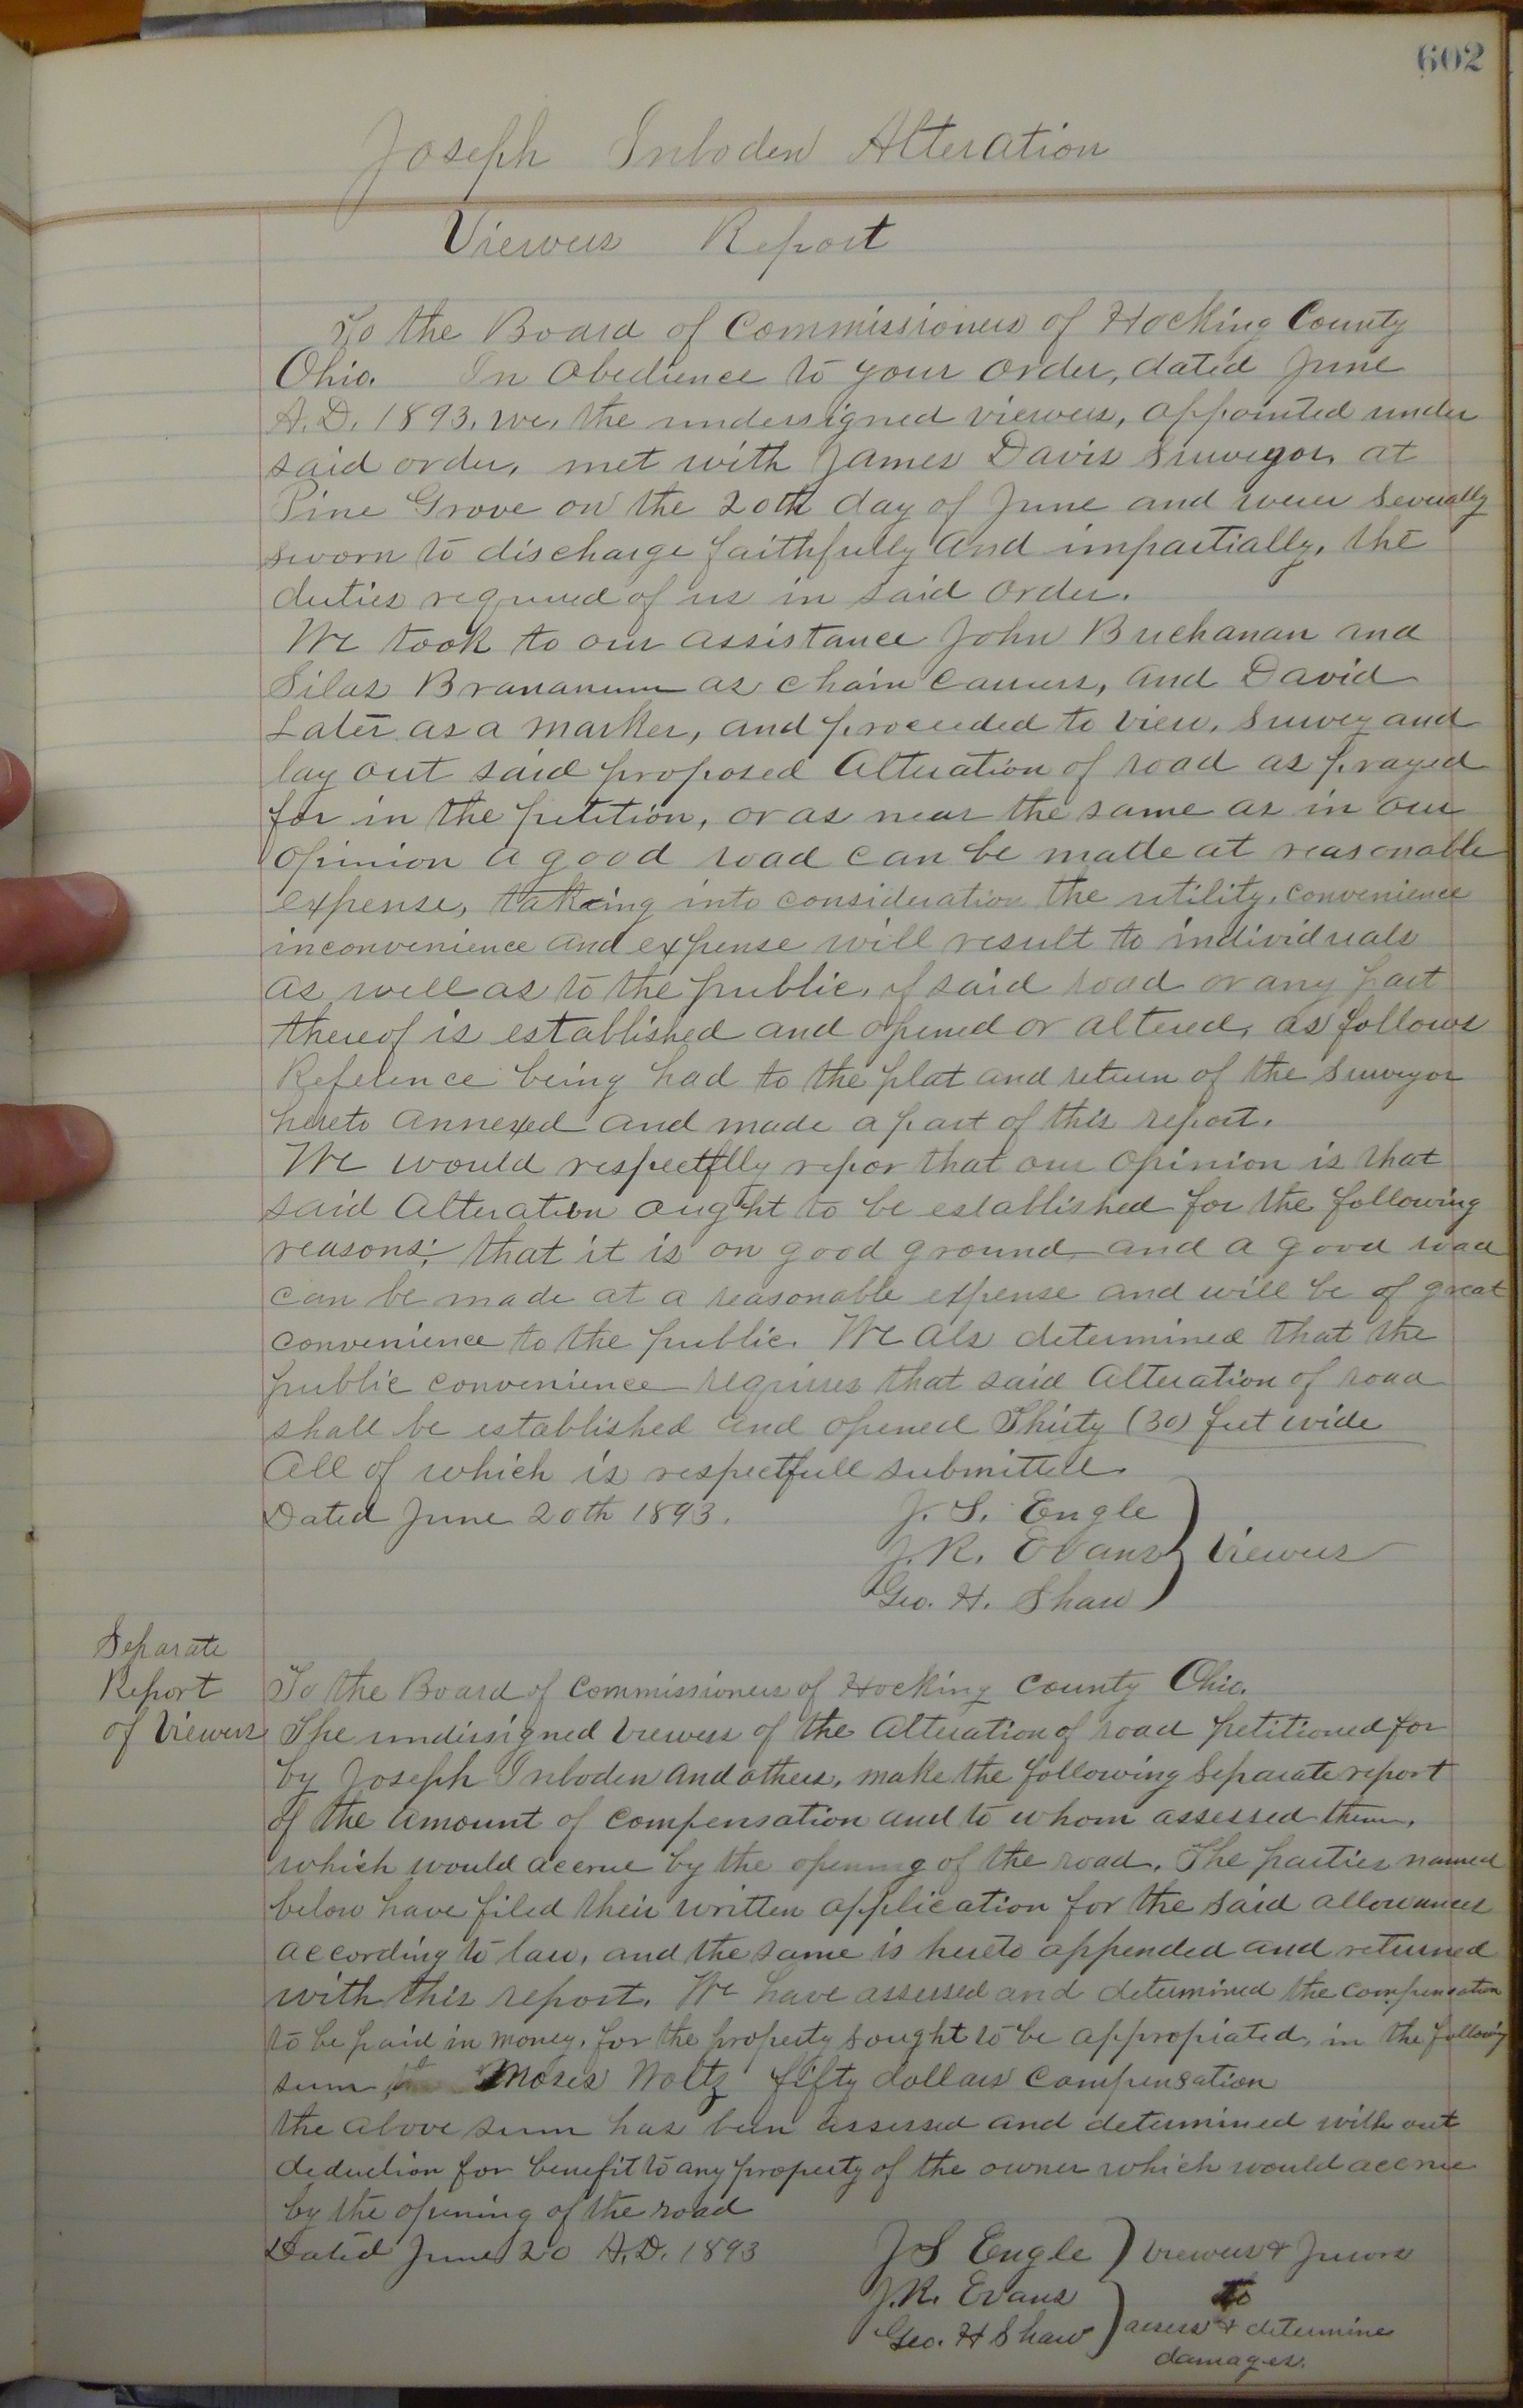 602
Joseph Inboden Alteration
Viewers Report
To the Board of Commissioners of Hocking County
Ohio. In Obedience to your order, dated June
A.D. 1893, we, the undersigned viewers, appointed under
said order, met with James Davis Surveyor, at
Pine Grove on the 20th day of June and were severally
sworn to discharge faithfully and impartially, the
duties required of us in said order.
We took to our assistance John Buchanan and
Silas Brananum as chain carriers, and David
Later as a marker, and proceeded to view, survey and
lay out said proposed Alteration of road as prayed
for in the petition, or as near the same as in our
opinion a good road can be made at reasonable
expense, taking into consideration the utility, convenience
inconvenience and expense will result to individuals
as well as to the public, if said road or any part
thereof is established and opened or altered, as follows
Reference being had to the plat and return of the Surveyor
hereto annexed and made a part of this report.
We would respectflly repor that our opinion is that
said Alteration ought to be established for the following
reasons; that it is on good ground and a good road
can be made at a reasonable expense and will be of great
convenience to the public. We als determined that the
public convenience requires that said Alteration of road
shall be established and opened Thirty (30) feet wide
All of which is respectfull submitted.
Dated June 20th 1893.
J. S. Engle
J. R. Evans } Viewers
Geo. H. Shaw
Separate
Report
of Viewers
To the Board of Commissioners of Hocking County Ohio.
The undersigned Viewers of the Alteration of road petitioned for
by Joseph Inboden and others, make the following separate report
of the amount of compensation and to whom assessed them,
which would accrue by the opening of the road. The parties named
below have filed their written application for the said allowances
according to law, and the same is hereto appended and returned
with this report. We have assessed and determined the compensation
to be paid in money, for the property sought to be appropiated, in the following
sum Moses Woltz fifty dollars compensation
the above sum has been assessed and determined without
deduction for benefit to any property of the owner which would accrue
by the opening of the road
Dated June 20 A.D. 1893
J S Engle } Viewers & Jurors
J. R. Evans to
Geo. H Shaw } assess & determine
damages.